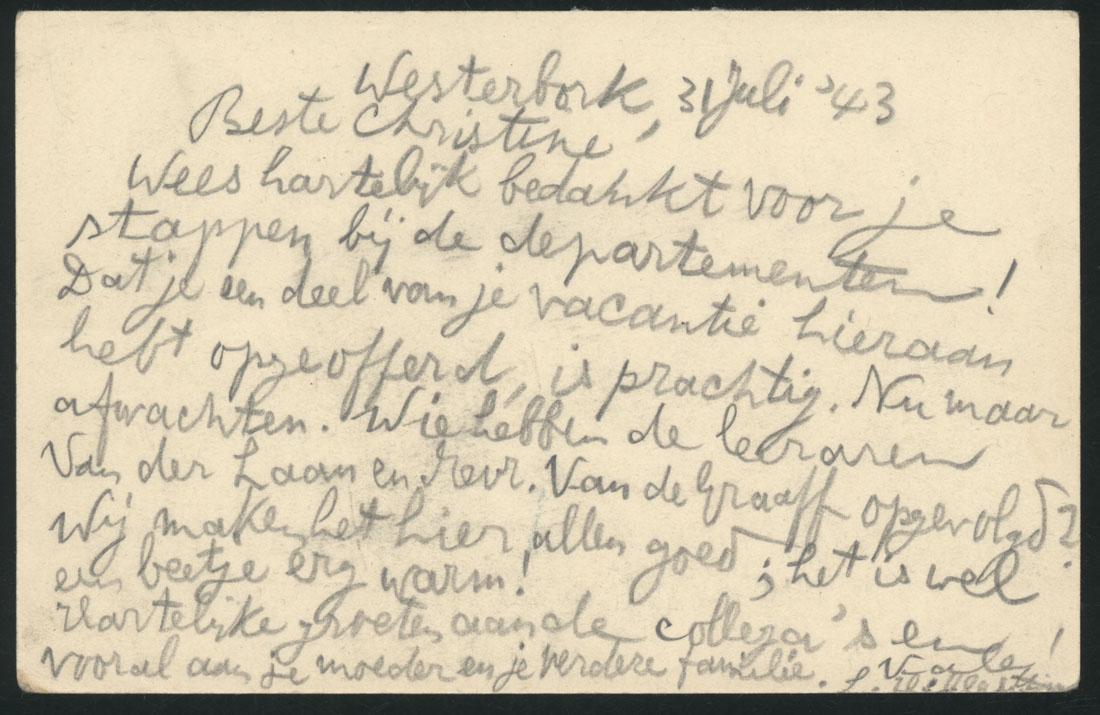 Westerbork, 31 Juli '43
Beste Christine,
Wees hartelijk bedankt voor je
stappen bij de departementen!
Dat je een deel van je vacantie hieraan
hebt opgeofferd, is prachtig. Nu maar
afwachten. Wie hebben de leraren
Van der Laan en Mevr. Van de Graaff opgevolgd?
Wij maken het hier allen goed; het is wel
een beetje erg warm!
Hartelijke groeten aan de collega's en
vooral aan je moeder en je verdere familie. Vale!